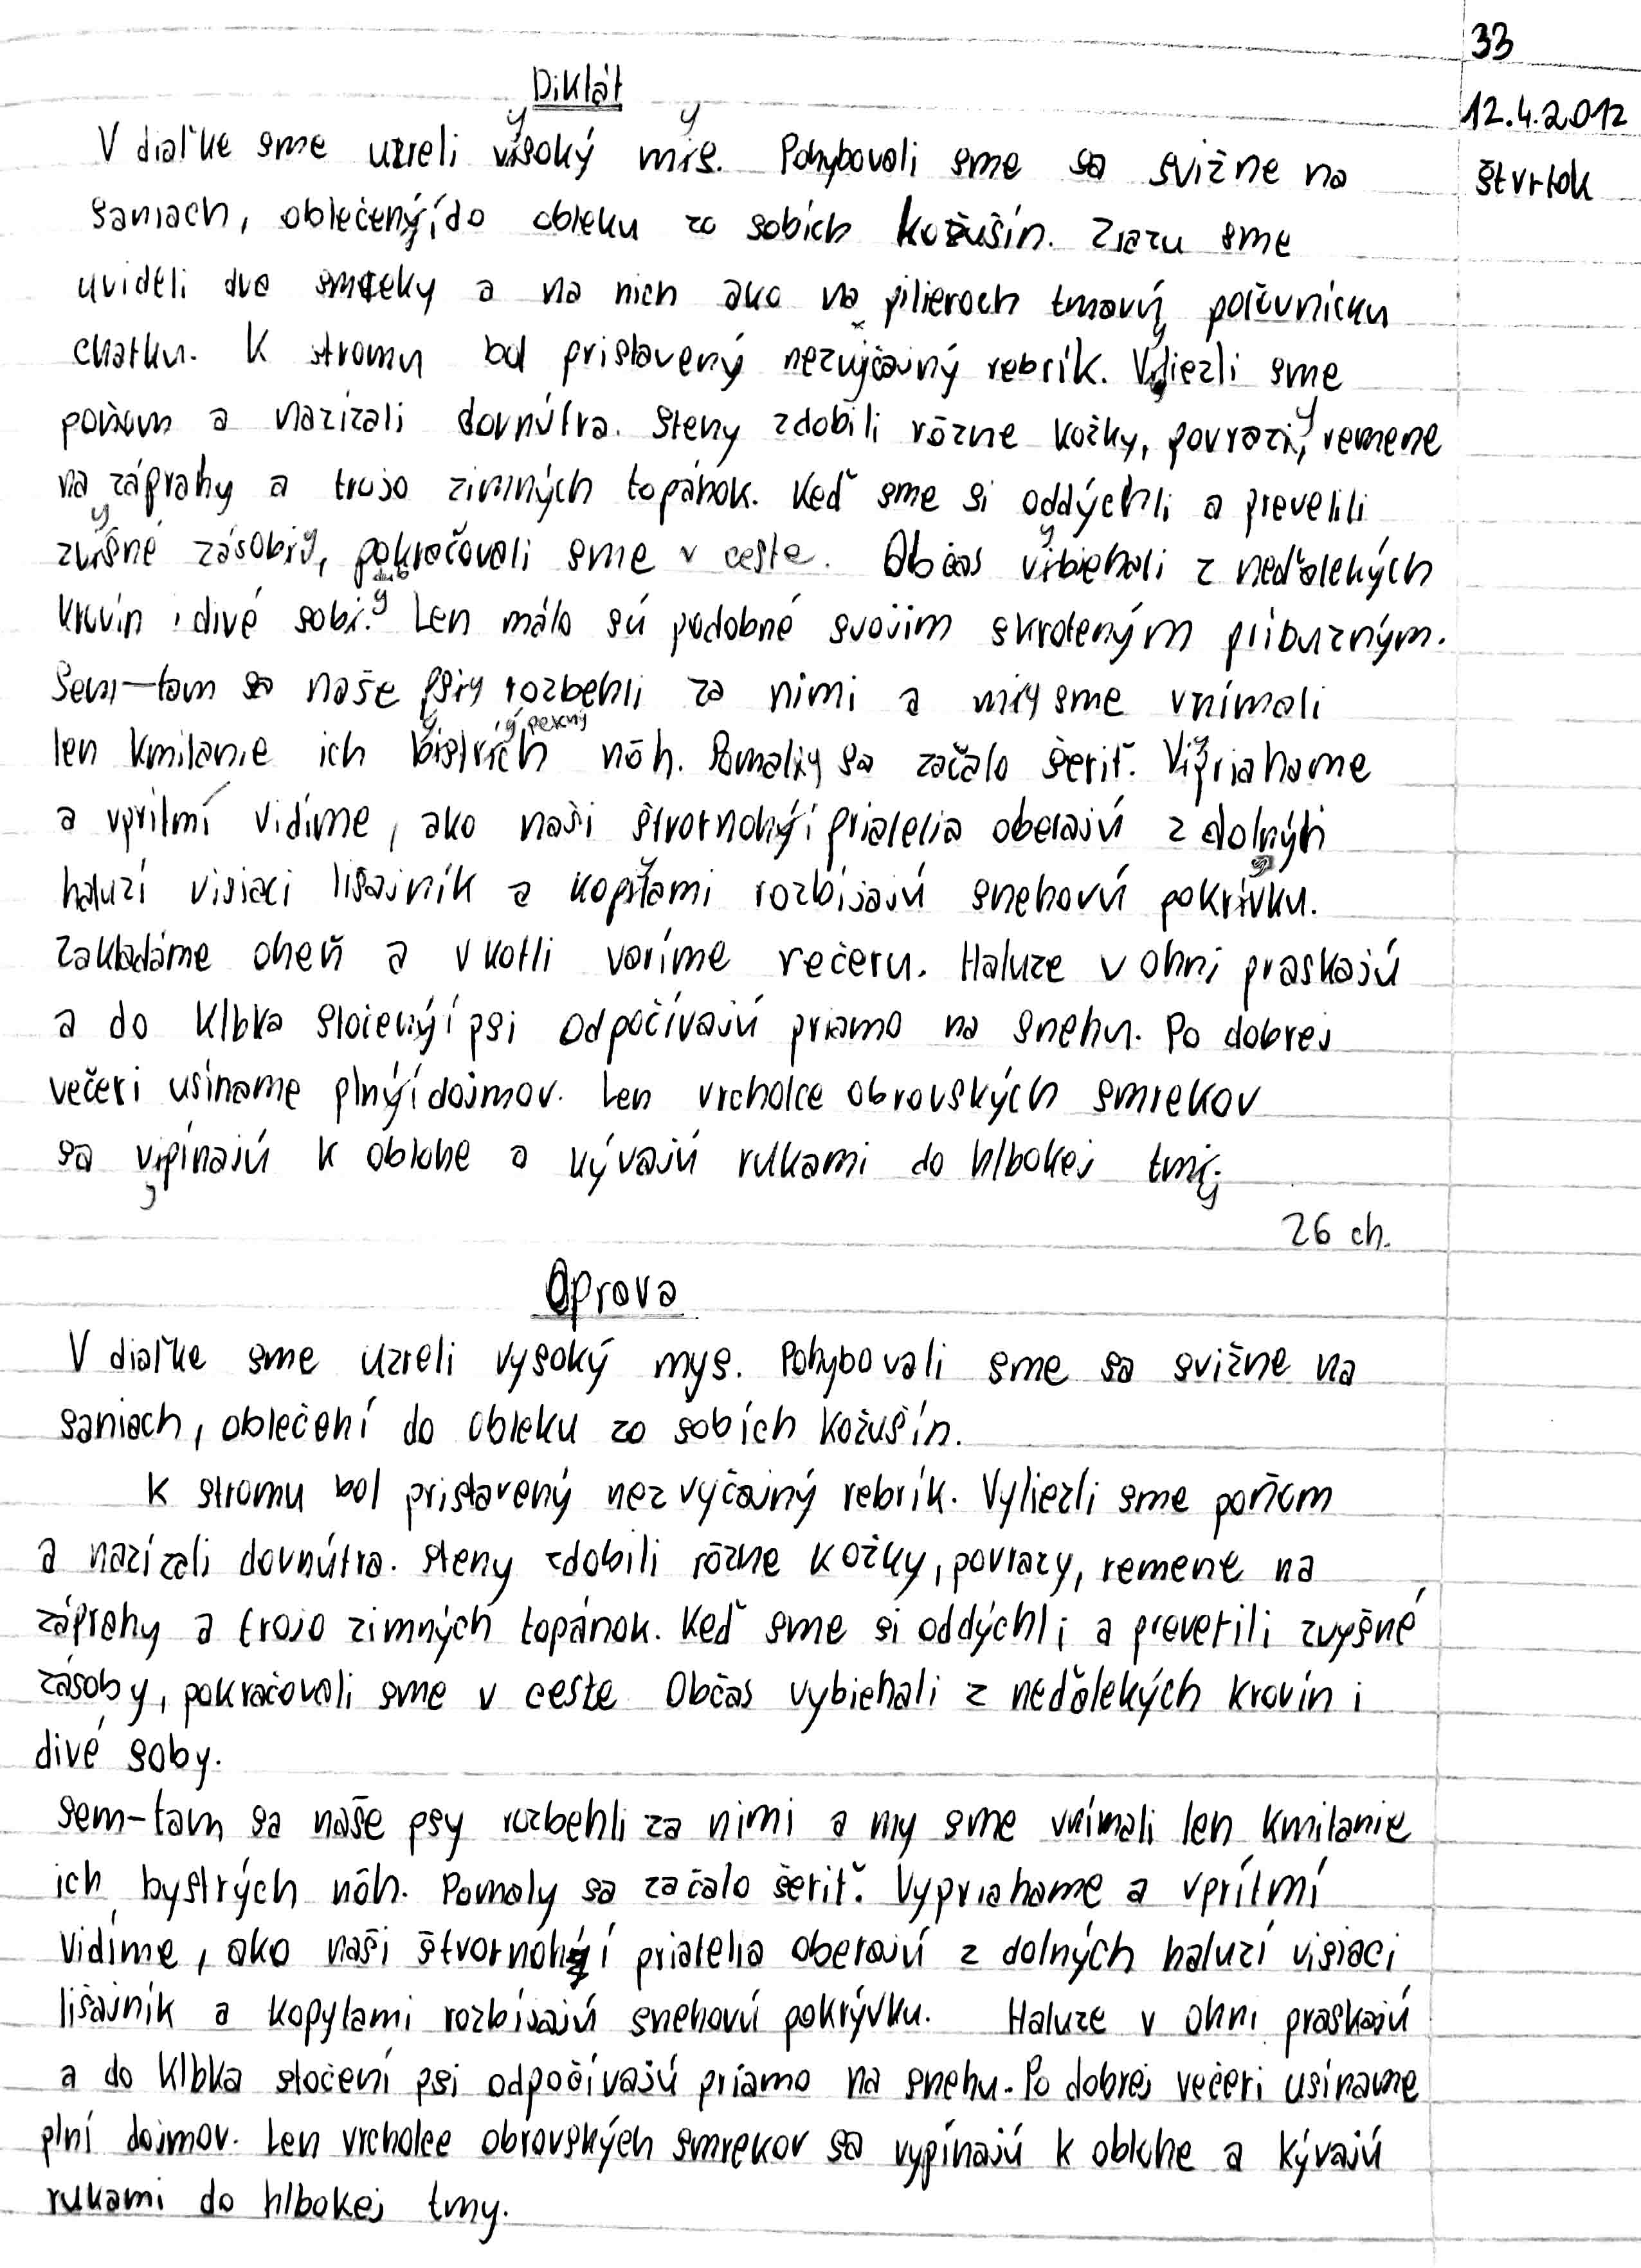 33
Diktát
12.4.2012
štvrtok
V diaľke sme uzreli visoký mis. Pohybovali sme sa svižne na
saniach, oblečený do obleku zo sobích kožušín. Zrazu sme
uvideli dva smreky a na nich ako na pilieroch tmavú poľovnícku
chatku. K stromu bol pristavený nezvýčajný rebrík. Viliezli sme
poňom a nazízali dovnútra. Steny zdobili rôzne kožky, povrazi, remene
na záprahy a trojo zimných topánok. Keď sme si oddýchli a preverili
zvišné zásobi, pokračovali sme v ceste. Občas vibiehali z neďalekých
krovín i divé sobi. Len málo sú podobné svojim skroteným príbuzným.
Sem-tam sa naše psi rozbehli za nimi a mi sme vnímali
len kmitanie ich bistrích nôh. Pomali sa začalo šeriť. Vipriahame
a vprítmí vidíme, ako naši štvornohý priatelia oberajú z dolných
haluzí visiaci lišajník a kopitami rozbíjajú snehovú pokrívku.
Zakladáme oheň a v kotli varíme večeru. Haluze v ohni praskajú
a do klbka stočený psi odpočívajú priamo na snehu. Po dobrej
večeri usíname plný dojmov. Len vrcholce obrovských smrekov
sa vipínajú k oblohe a kývajú rukami do hlbokej tmi.
26 ch.
Oprava
V diaľke sme uzreli vysoký mys. Pohybovali sme sa svižne na
saniach, oblečení do obleku zo sobích kožušín.
K stromu bol pristavený nezvyčajný rebrík. Vyliezli sme poňom
a nazízali dovnútra. Steny zdobili rôzne kožky, povrazy, remene na
záprahy a trojo zimných topánok. Keď sme si oddýchli a preverili zvyšné
zásoby, pokračovali sme v ceste Občas vybiehali z neďalekých krovín i
divé soby.
Sem-tam sa naše psy rozbehli za nimi a my sme vnímali len kmitanie
ich bystrých nôh. Pomaly sa začalo šeriť. Vypriahame a vprítmí
vidíme, ako naši štvornohí priatelia oberajú z dolných haluzí visiaci
lišajník a kopytami rozbíjajú snehovú pokrývku. Haluze v ohni praskajú
a do klbka stočení psi odpočívajú priamo na snehu. Po dobrej večeri usíname
plní dojmov. Len vrcholce obrovských smrekov sa vypínajú k oblohe a kývajú
rukami do hlbokej tmy.